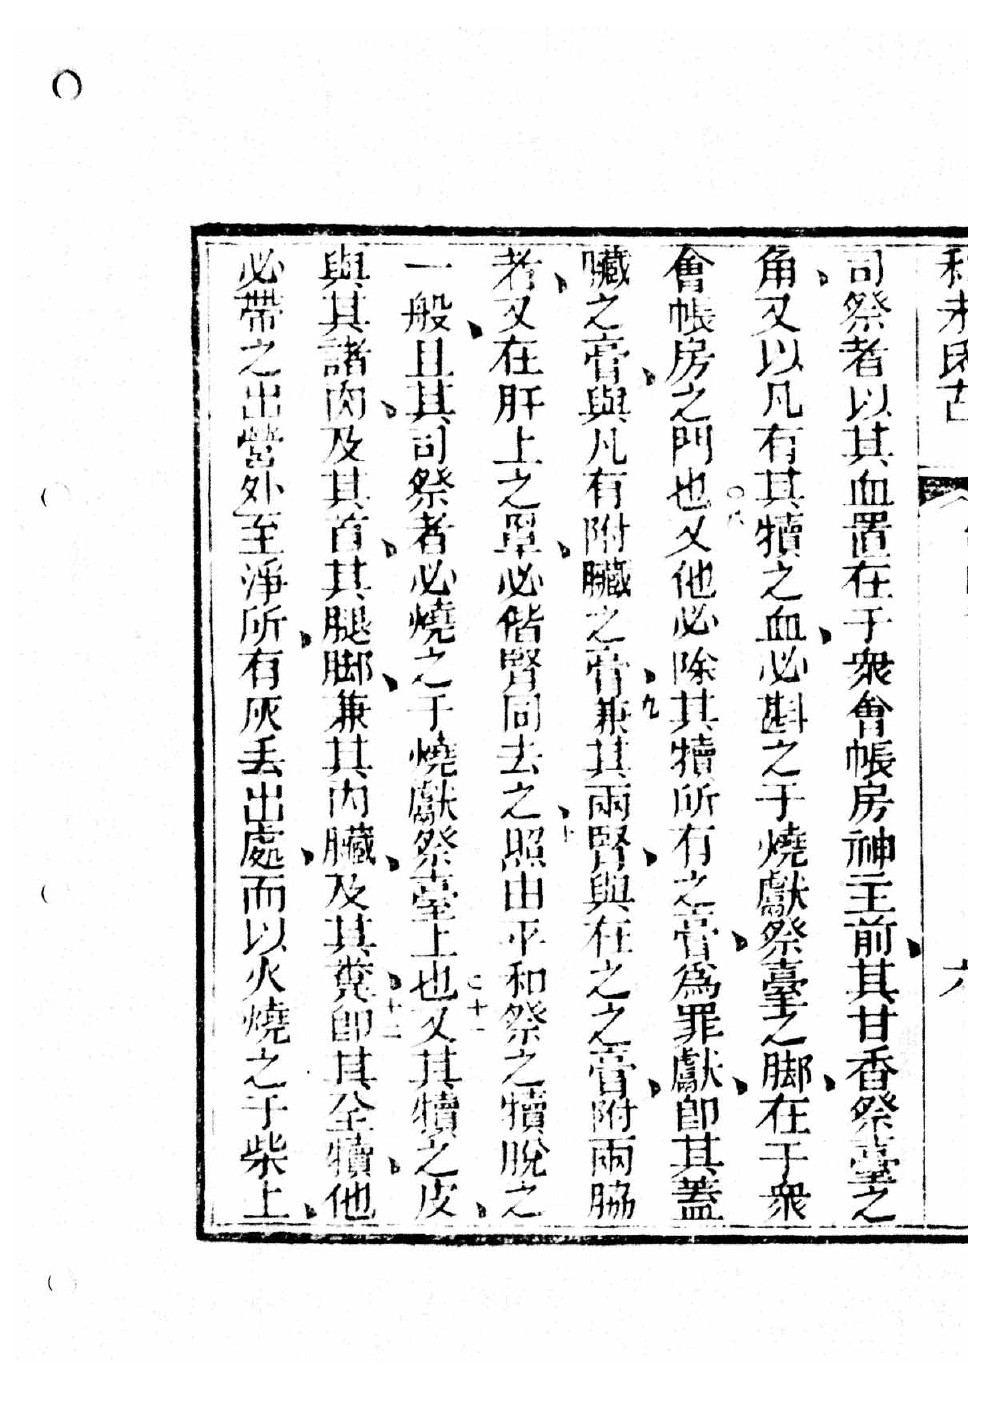 司祭者以其血置在于衆會帳房神主前、其甘香祭臺之
角、又以凡有其犢之血、必斟之于燒獻祭臺之脚、在于衆
會帳房之門也。八又他必除其犢所有之膏、爲罪獻、卽其蓋
臟之膏、與凡有附臟之膏、九兼其兩腎、與在之之膏、附兩脇
者、又在肝上之單、必偕腎同去之、十照由平和祭之犢脫之
一般、且其司祭者必燒之于燒獻祭臺上也。十一又其犢之皮、
與其諸肉、及其首、其腿脚、兼其內臟、及其糞、十二卽其全犢、他
必帶之出營外至淨所、有灰丟出處、而以火燒之于柴上、
六